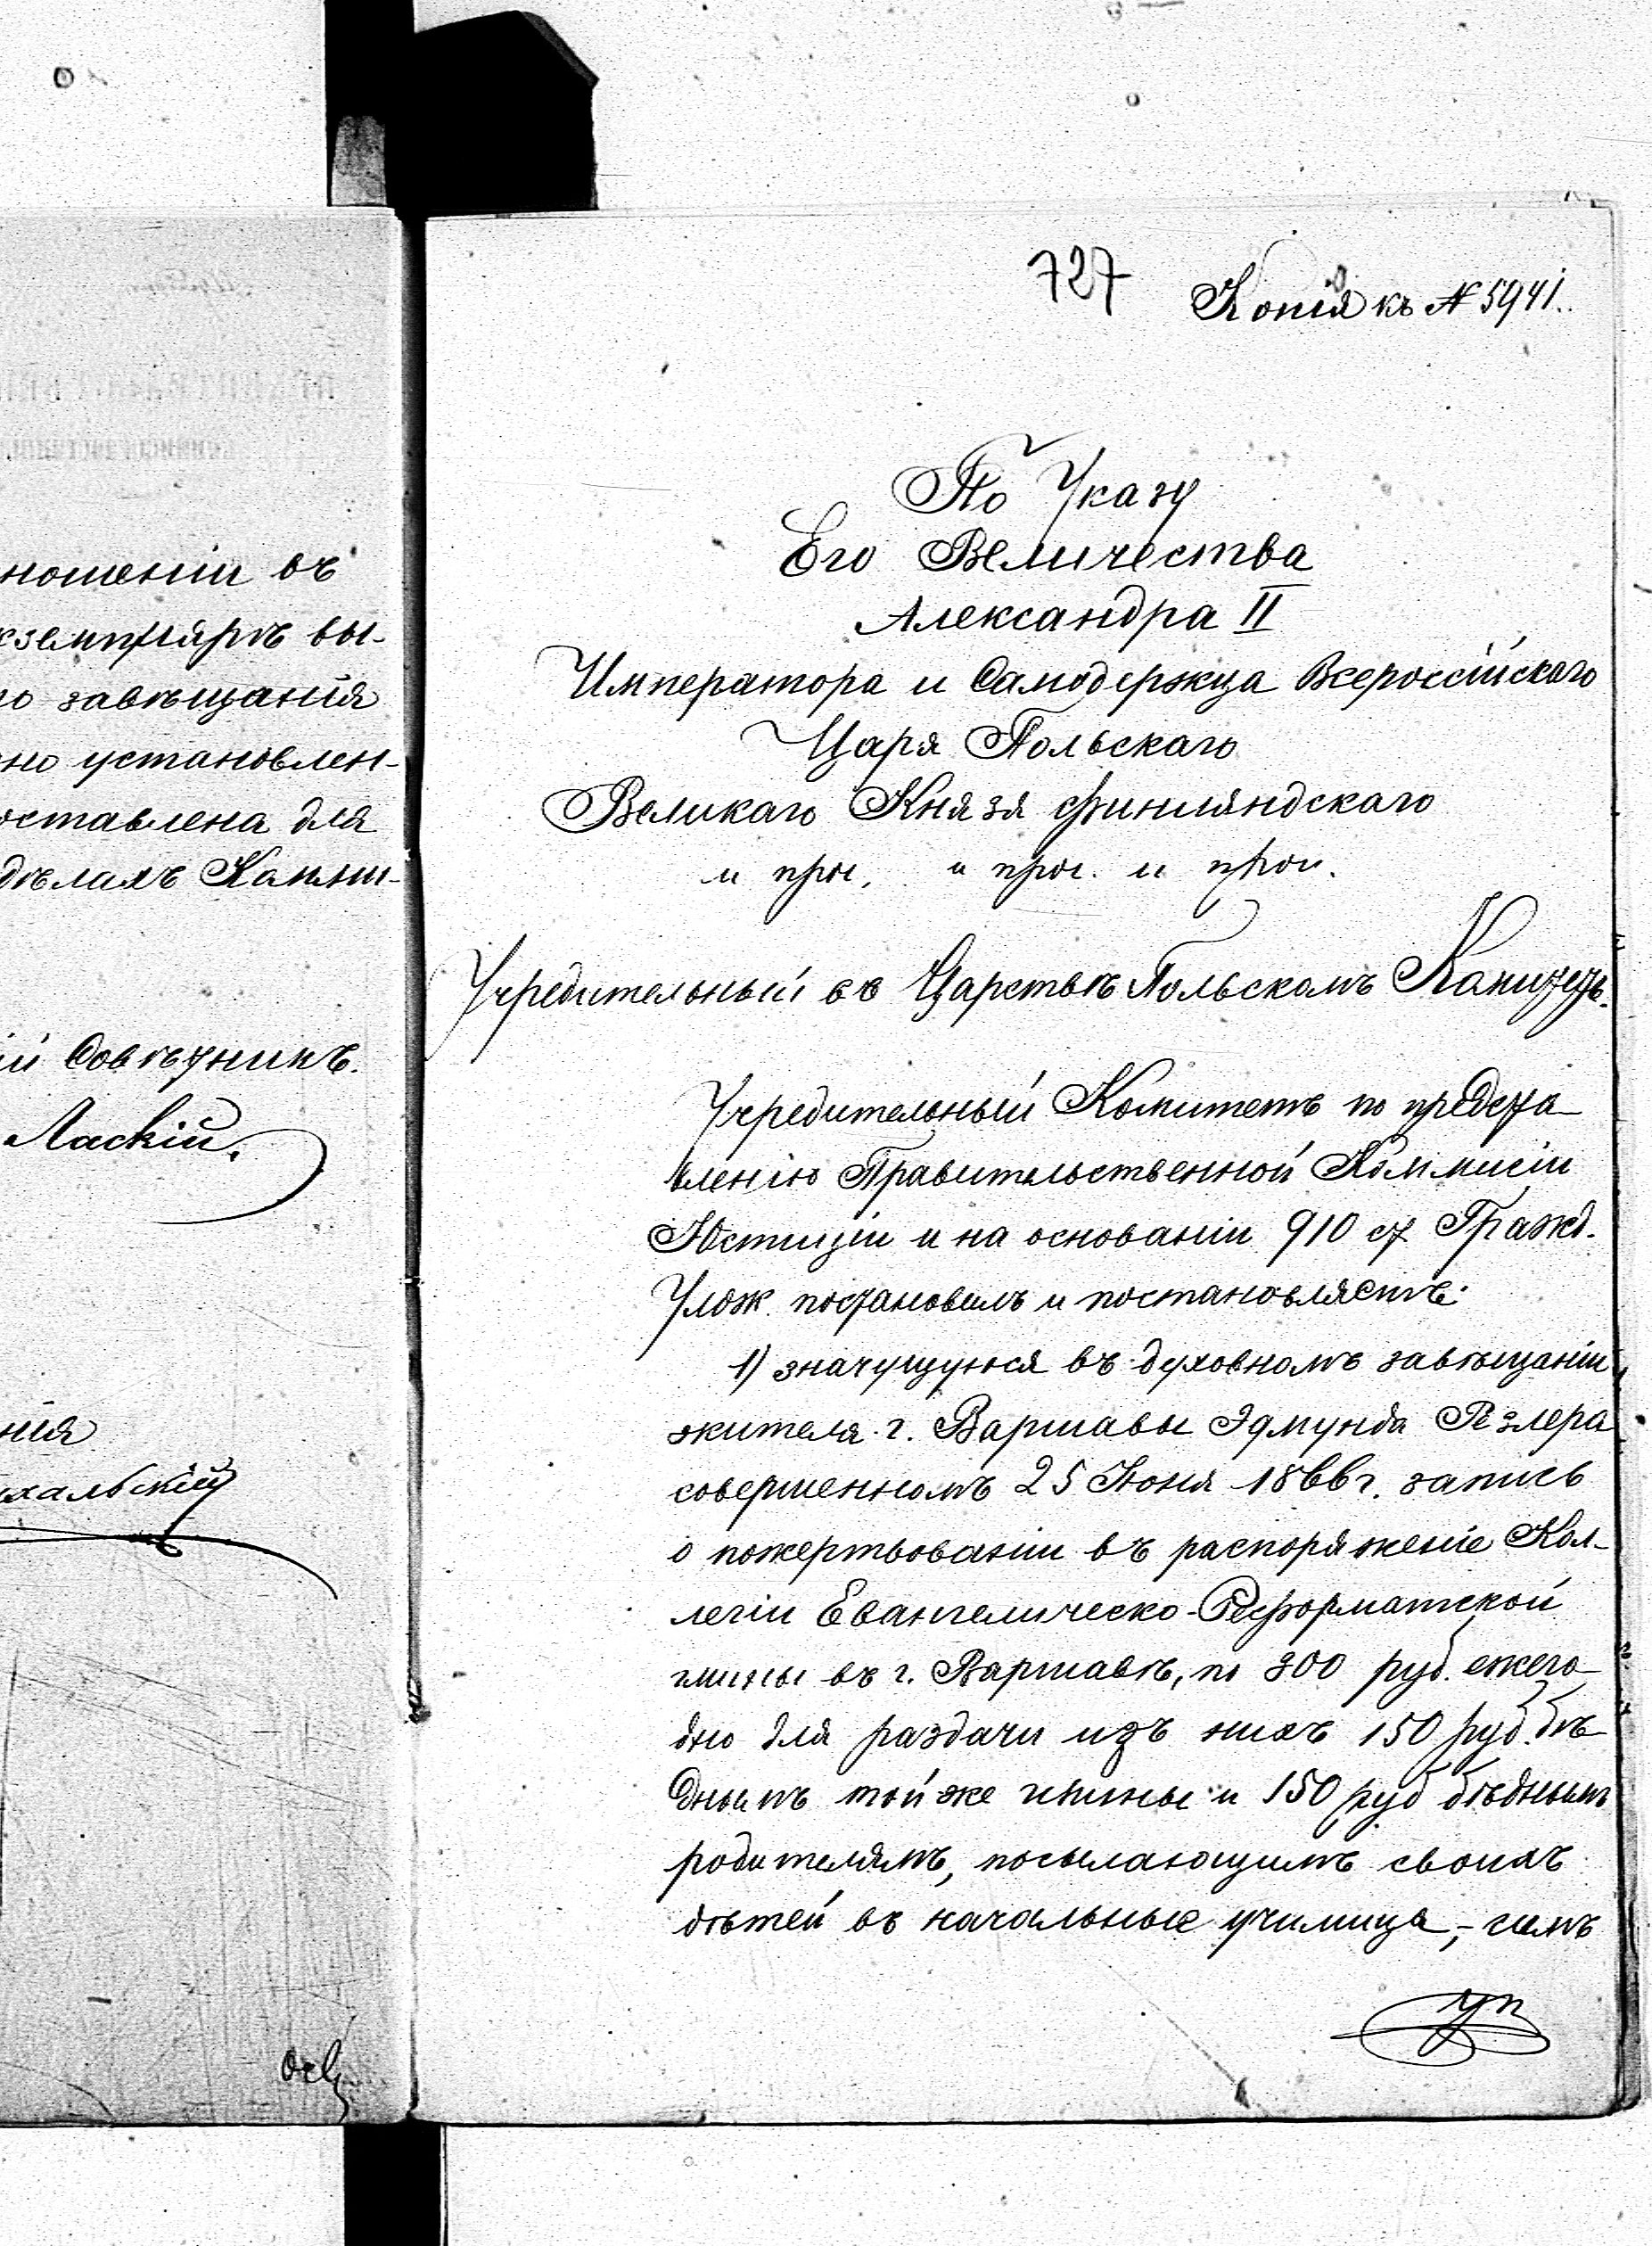 ношеніи въ
кземпляръ вы-
го завѣщанія
но установлен-
оставлена для
дѣлахъ Канцл-
ій Совѣтникъ.
Ласкій.
нія
хальскій
727
Копія къ № 5941.
По Указу
Его Величества
Александра II
Императора и Самодержца Всероссійскаго
Царя Польскаго
Великаго Князя Финляндскаго
и проч. и проч. и проч.
Учредительный въ Царствѣ Польскомъ Комитетъ.
Учредительный Комитетъ по предста
вленію Правительственной Коммисіи
Юстиціи и на основаніи 910 ст Гражд.
Улож. постановилъ и постановляетъ:
1) значущуюся въ духовномъ завѣщаніи
жителя г. Варшавы Эдмунда Резлера
совершенномъ 25 Іюня 1866 г. запись
о пожертвованіи въ распоряженіе Кол-
легіи Евангелическо-Реформатской
гмины въ г. Варшавѣ, по 300 руб. ежего
дно для раздачи изъ нихъ 150 руб. бѣ
днымъ той же гмины и 150 руб бѣднымъ
родителямъ, посылающимъ своихъ
дѣтей въ начальные училища,-